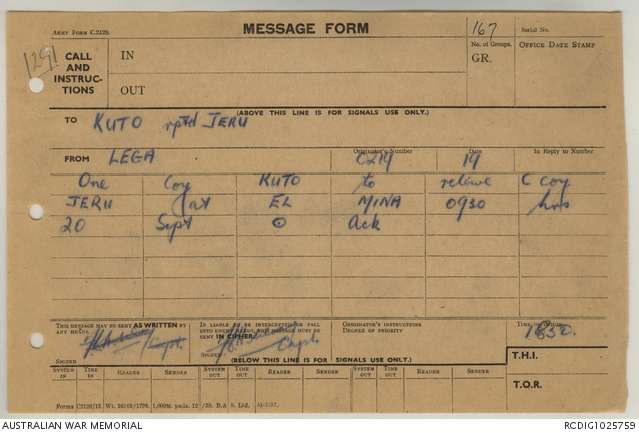 Army Form C.2128.
MESSAGE FORM
167
Serial No.
129
CALL AND INSTRUC-TIONS
IN
OUT
No. of Groups.
GR.
OFFICE DATE STAMP
(ABOVE THIS LINE IS FOR SIGNALS USE ONLY.)
TO KUTO rptd JERU
FROM LEGA
Originator's Number
0219
Date
19
In Reply to Number
One Coy KUTO to relieve C coy
JERU (at EL MINA 0930 hrs
20 Sept ⊙ ack
THIS MESSAGE MAY BE SENT AS WRITTEN BY
ANY MEANS.
SIGNED Capt.
IF LIABLE TO BE INTERCEPTED OR FALL
INTO ENEMY HANDS, THIS MESSAGE MUST BE
SENT IN CIPHER.
SIGNED Capt.
ORIGINATOR'S INSTRUCTIONS
DEGREE OF PRIORITY
TIME OF ORIGIN
1830.
(BELOW THIS LINE IS FOR SIGNALS USE ONLY.)
T.H.I.
T.O.R.
SYSTEM IN TIME IN READER SENDER SYSTEM OUT TIME OUT READER SENDER SYSTEM OUT TIME OUT READER SENDER
AUSTRALIAN WAR MEMORIAL
RCDIG1025759